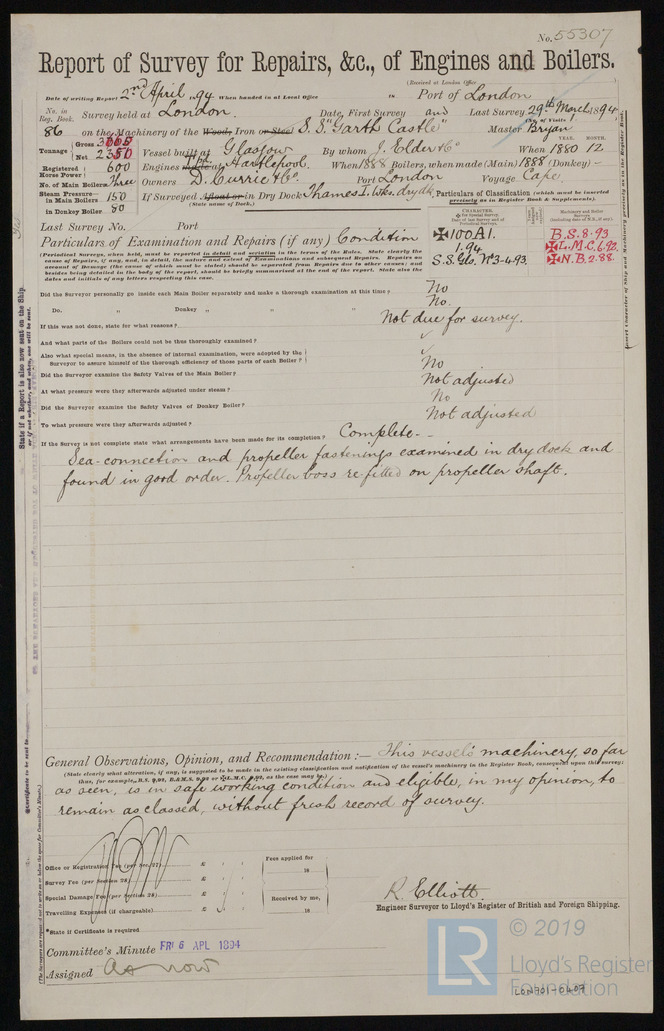 No. 55307
Report of Survey for Repairs, &c., of Engines and Boilers.
(Received at London Office
Date of writing Report 2nd April 1894 When handed in at Local Office 18 Port of London
No. in Reg. Book. Survey held at London. Date, First Survey and Last Survey 29th March 1894
(No. of Visits 1
86 on the Machinery of the Wood, Iron or Steel S.S. "Garth Castle" Master Bryan
Tonnage Gross Net 2350 Vessel built at Glasgow By whom J. Elder & Co When YEAR. 1880 MONTH. 12
Registered Horse Power 600 Engines made at Hartlepool. When 1888 Boilers, when made (Main) 1888 (Donkey) —
No. of Main Boilers Three Owners D. Currie & Co. Port London Voyage Cape
Steam Pressure in Main Boilers 150 If Surveyed Afloat or in Dry Dock Thames I. Wks. dry dk.
(State name of Dock.)
in Donkey Boiler 80
Particulars of Classification (which must be inserted precisely as in Register Book & Supplements).
Last Survey No. Port
CHARACTER.
✠ for Special Survey.
Date of last Survey and of Periodical Surveys.
Machinery and Boiler Surveys
(including date of N.B., if any).
Particulars of Examination and Repairs (if any) Condition
✠100A1.
1.94
S.S. Gls. No 3-4.93.
B.S. 8.93
✠L.M.C. 6.92.
✠N.B. 2.88.
(Periodical Surveys, when held, must be reported in detail and seriatim in the terms of the Rules. State clearly the
cause of Repairs, if any, and, in detail, the nature and extent of Examinations and subsequent Repairs. Repairs on
account of Damage (the cause of which must be stated) should be separated from Repairs due to other causes; and
besides being detailed in the body of the report, should be briefly summarised at the end of it. State also the
dates and initials of any letters respecting this case.
Did the Surveyor personally go inside each Main Boiler separately and make a thorough examination at this time? No
Do. „ Donkey „ „ „ No.
If this was not done, state for what reasons? Not due for survey.
And what parts of the Boilers could not be thus thoroughly examined?
Also what special means, in the absence of internal examination, were adopted by the
Surveyor to assure himself of the thorough efficiency of those parts of each Boiler?
Did the Surveyor examine the Safety Valves of the Main Boiler? No
At what pressure were they afterwards adjusted under steam? Not adjusted
Did the Surveyor examine the Safety Valves of Donkey Boiler? No
To what pressure were they afterwards adjusted? Not adjusted
If the Survey is not complete state what arrangements have been made for its completion? Complete —
Sea-connection and propeller fastenings examined in dry dock and
found in good order. Propeller boss re-fitted on propeller shaft.
General Observations, Opinion, and Recommendation :— This vessel's machinery, so far
(State clearly what alteration, if any, is suggested to be made in the existing classification and notification of the vessel's machinery in the Register Book, consequent upon this survey:
thus, for example, B.S. 9,92, B.&M.S. 9,92 or ✠L.M.C. 9,92, as the case may be.)
as seen, is in safe working condition and eligible, in my opinion, to
remain as classed, without fresh record of survey.
Office or Registration Fee (per Sec. 27) £ : :
Survey Fee (per Section 28) £ : :
Special Damage Fee (per Section 28) £ : :
Travelling Expenses (if chargeable) £ : :
Fees applied for
18
Received by me,
18
R. Elliott.
Engineer Surveyor to Lloyd's Register of British and Foreign Shipping.
*State if Certificate is required
Committee's Minute FRI 6 APL 1894
Assigned As now
State if a Report is also now sent on the Ship.
Insert Character of Ship and Machinery precisely as in the Register Book.
LR
© 2019
Lloyd's Register
Foundation
LON701-0407